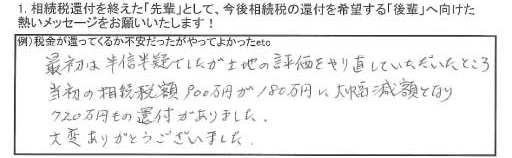 1. 相続税還付を終えた「先輩」として、今後相続税の還付を希望する「後輩」へ向けた
熱いメッセージをお願いいたします！
例）税金が還ってくるか不安だったがやってよかったetc
最初は半信半疑でしたが土地の評価をやり直していただいたところ
当初の相続税額900万円が180万円に大幅減額となり
720万円もの還付がありました。
大変ありがとうございました。